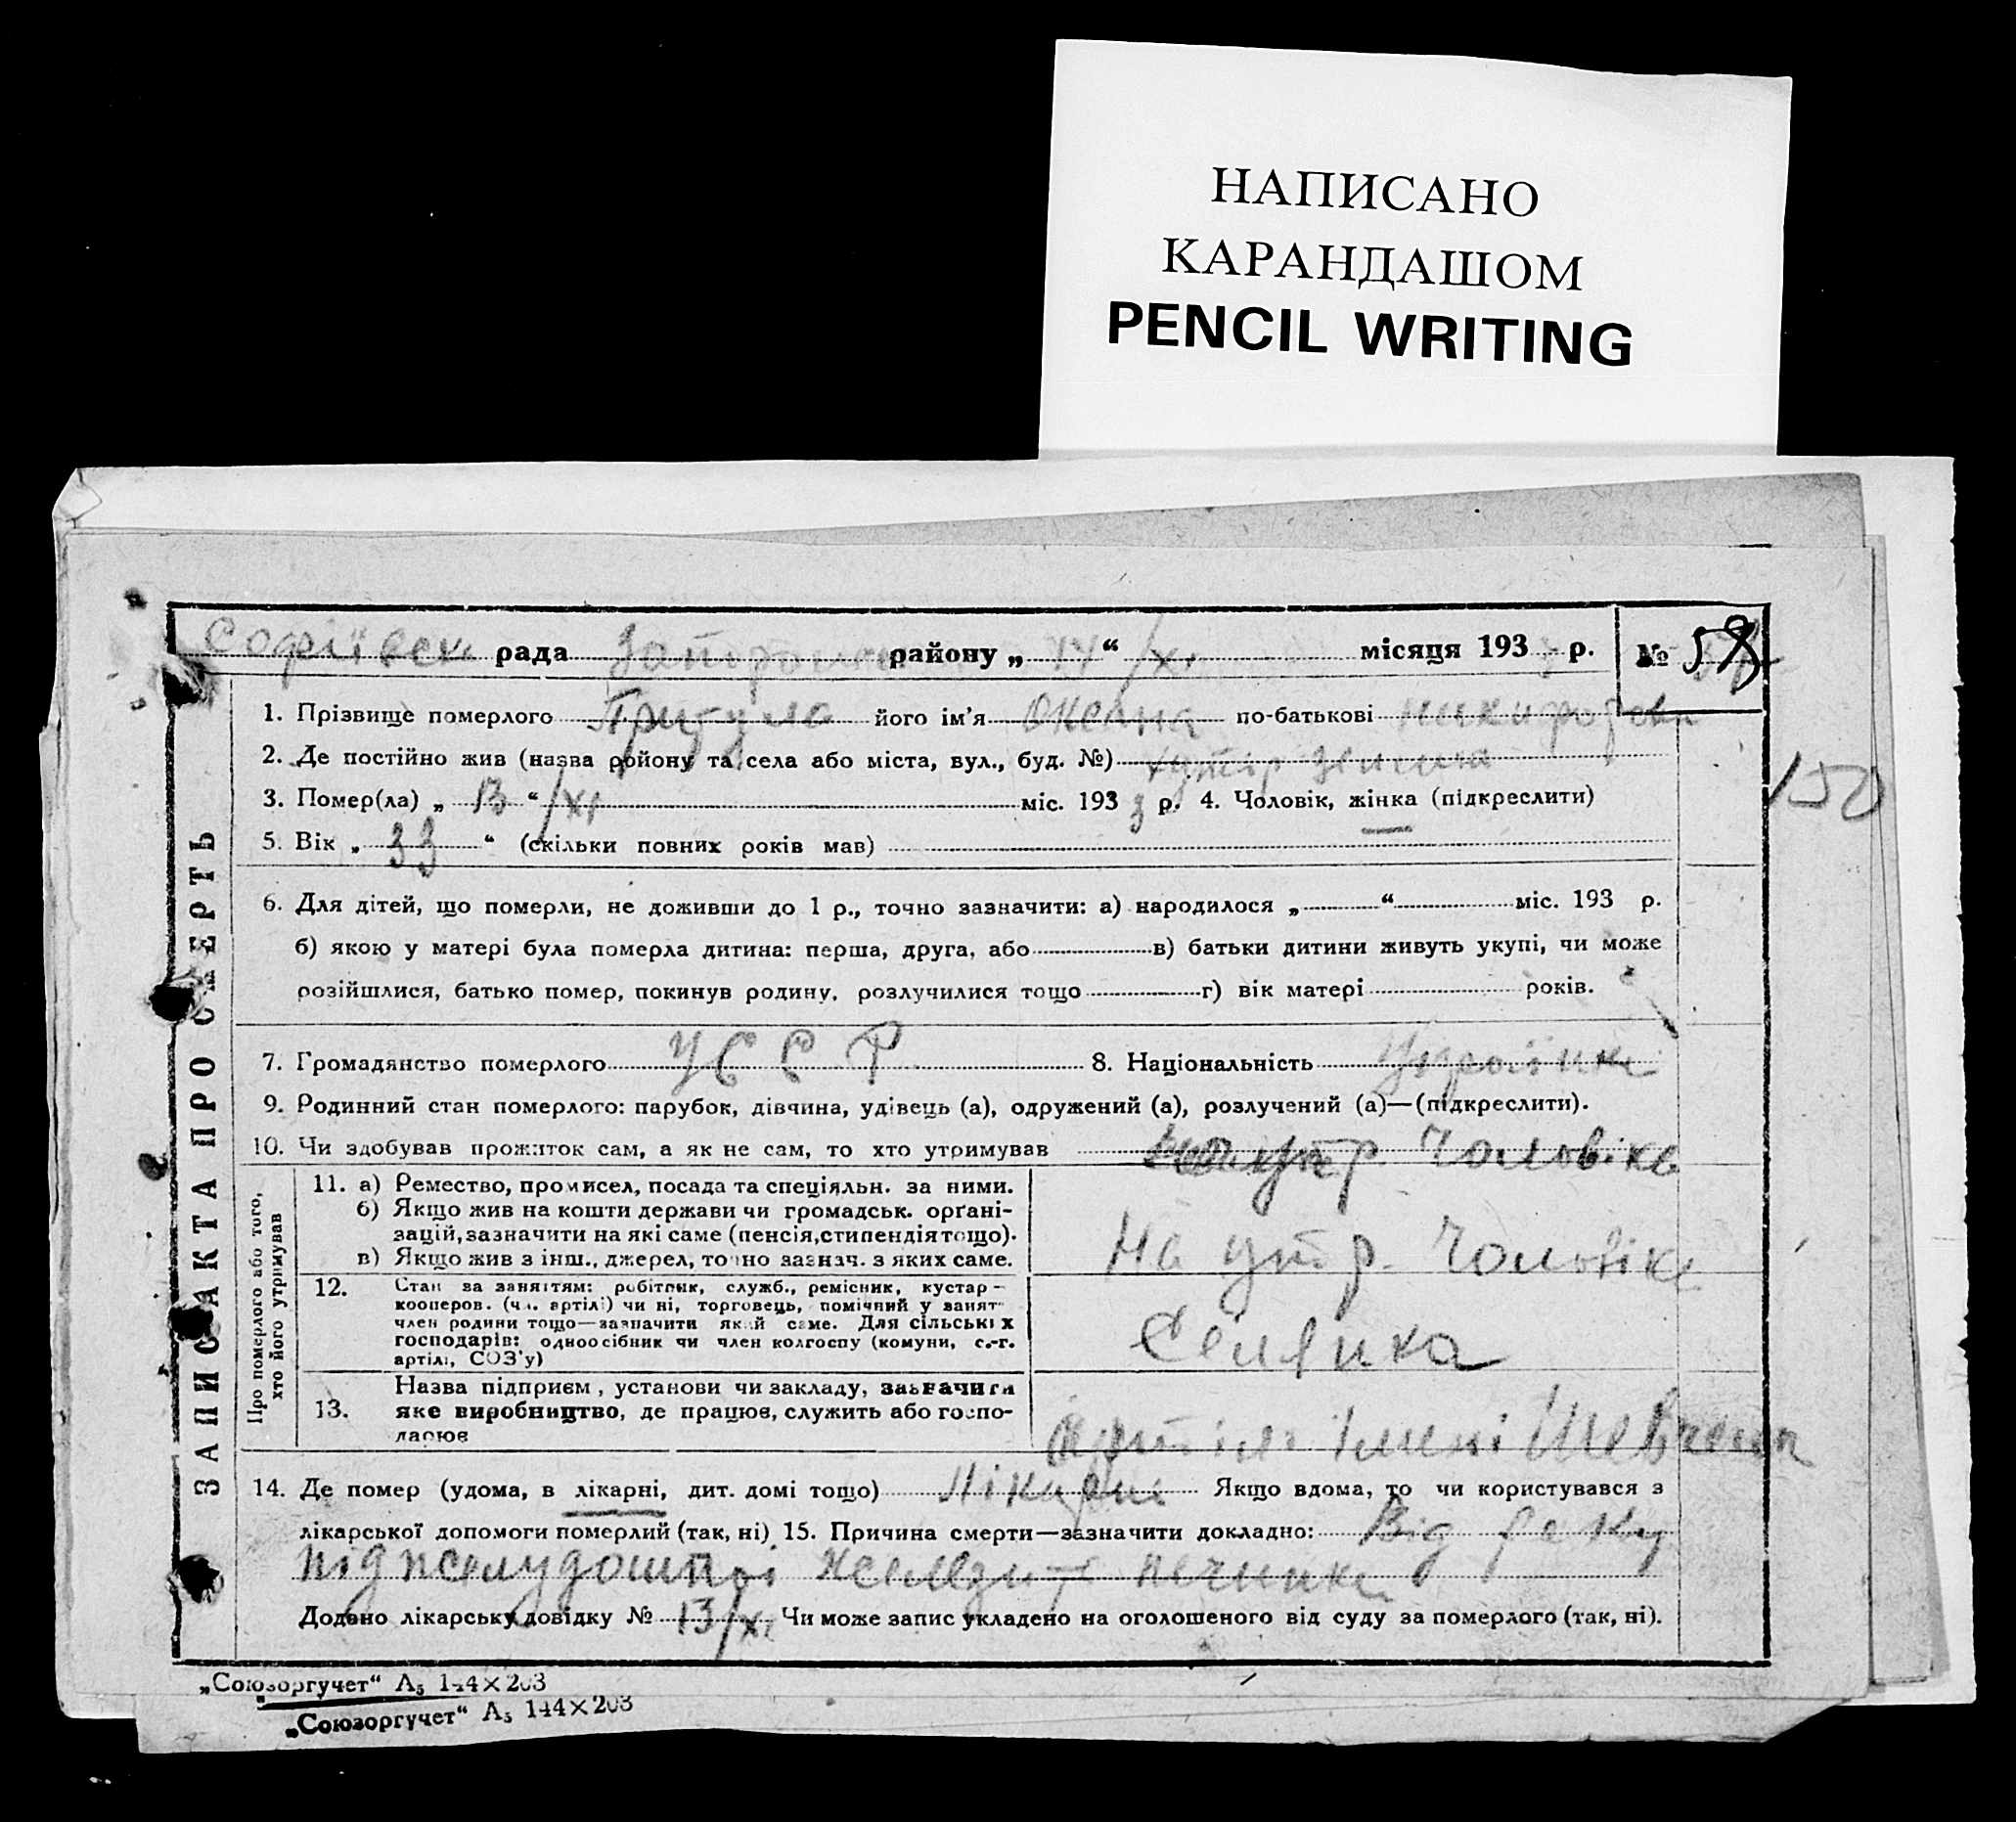 НАПИСАНО
КАРАНДАШОМ
PENCIL WRITING
Софіївск рада районy „ 14 “ /XI місяця 193 3 р. № 58
1. Прізвище померлого Притула його ім’я Оксана по-батькові Никифоровн
2. Де постійно жив (назва району та села або міста, вул., буд. №) хутір
3. Помер(ла) „ 13 “ /XI міс. 193 3 р. 4. Чоловік, жінка (підкреслити)
150
5. Вік „ 33 “ (скільки повних років мав)
6. Для дітей, що померли, не доживши до 1 р., точно зазначити: а) народилося „ “ міс. 193 р.
б) якою у матері була померла дитина: перша, друга, або в) батьки дитини живуть укупі, чи може
розійшлися, батько помер, покинув родину, розлучилися тощо г) вік матері років.
7. Громадянство померлого УССР 8. Національність Українка
9. Родинний стан померлого: парубок, дівчина, удівець (а), одружений (а), розлучений (а)—(підкреслити).
10. Чи здобував прожиток сам, а як не сам, то хто утримував утр. Чоловіка
11. а) Ремество, промисел, посада та спеціяльн. за ними.
б) Якщо жив на кошти держави чи громадськ. орґані-
зацій, зазначити на які саме (пенсія, стипендія тощо).
в) Якщо жив з інш., джерел, точно зазнач. з яких саме.
На утр. Чоловіка
12. Стан за заняттям: робітник, служб., ремісник, кустар—
кооперов. (чл. артілі) чи ні, торговець, помічний у занят-
член родини тощо—зазначити який саме. Для сільських
господарів: одноосібник чи член колгоспу (комуни, с.-г.
артілі, СОЗ’у)
Селянка
Назва підприєм, установи чи закладу, зазначити
13. яке виробництво, де працює, служить або госпо-
дарює
Артіль імені Шевченк
14. Де помер (удома, в лікарні, дит. домі тощо) Лікарні Якщо вдома, то чи користувався з
лікарської допомоги померлий (так, ні) 15. Причина смерти—зазначити докладно: Від раку
підшлудошної печинки
Додано лікарську довідку № 13/XI Чи може запис укладено на оголошеного від суду за померлого (так, ні).
ЗАПИС АКТА ПРО СМЕРТЬ
Про померлого або того,
хто його утримував
„Союзоргучет“ А₅ 144×203
„Союзоргучет“ А₅ 144×203